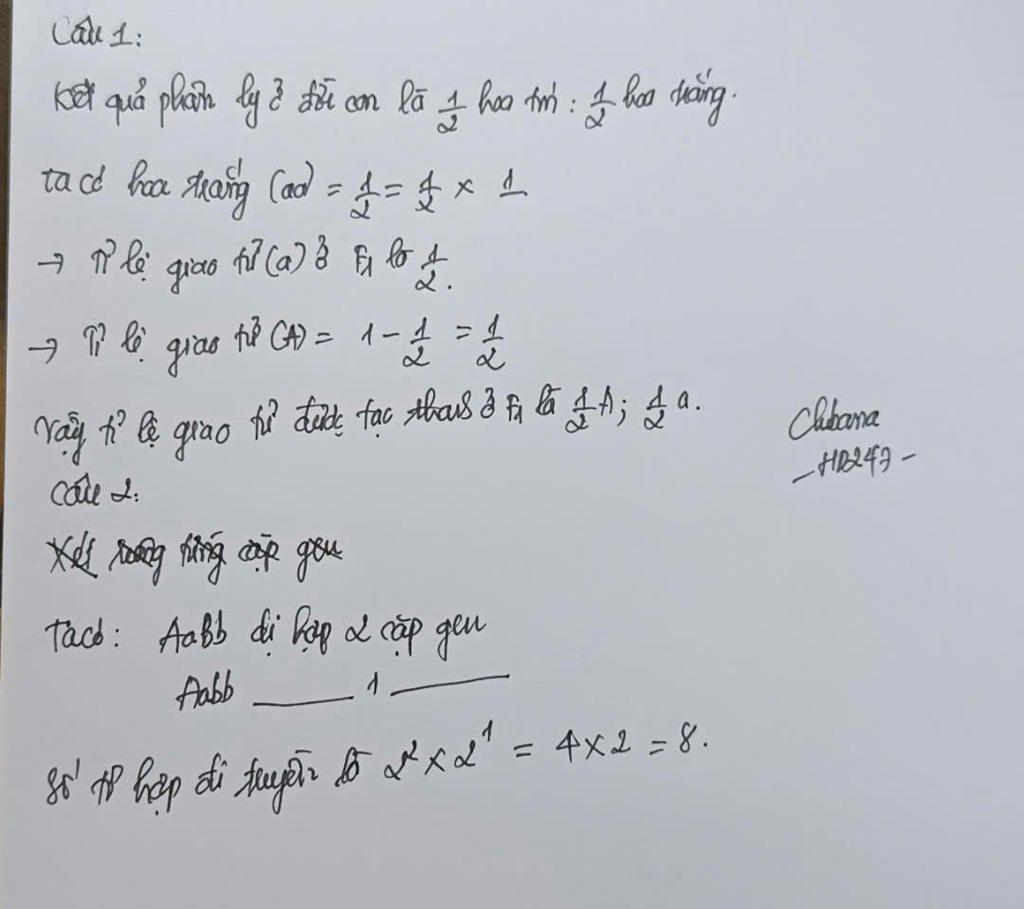 Câu 1:
Kết quả phân ly ở đời con là 1/2 hoa tím : 1/2 hoa trắng.
ta có hoa trắng (aa) = 1/2 = 1/2 × 1
→ Tỉ lệ giao tử (a) ở F1 là 1/2.
→ Tỉ lệ giao tử (A) = 1 - 1/2 = 1/2
Vậy tỉ lệ giao tử được tạo thành ở F1 là 1/2 A; 1/2 a.
Chibana
- HD247 -
Câu 2:
Xét từng cặp gen
Ta có: AaBb dị hợp 2 cặp gen
Aabb ——— 1 ———
Số tổ hợp di truyền là 2² × 2¹ = 4 × 2 = 8.